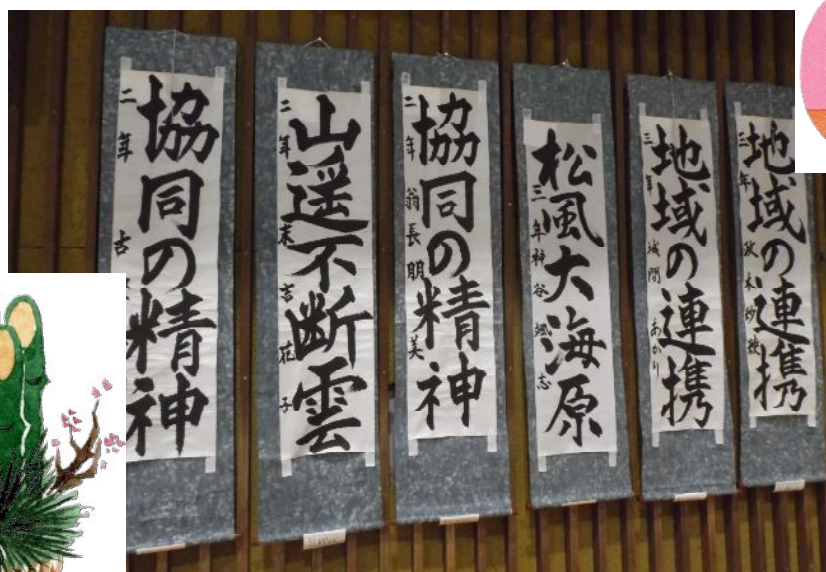 協同の精神
二年
山遥不断雲
二年 末吉花子
協同の精神
二年 翁長朋美
松風大海原
三年 神谷颯志
地域の連携
三年 城間あかり
地域の連携
三年